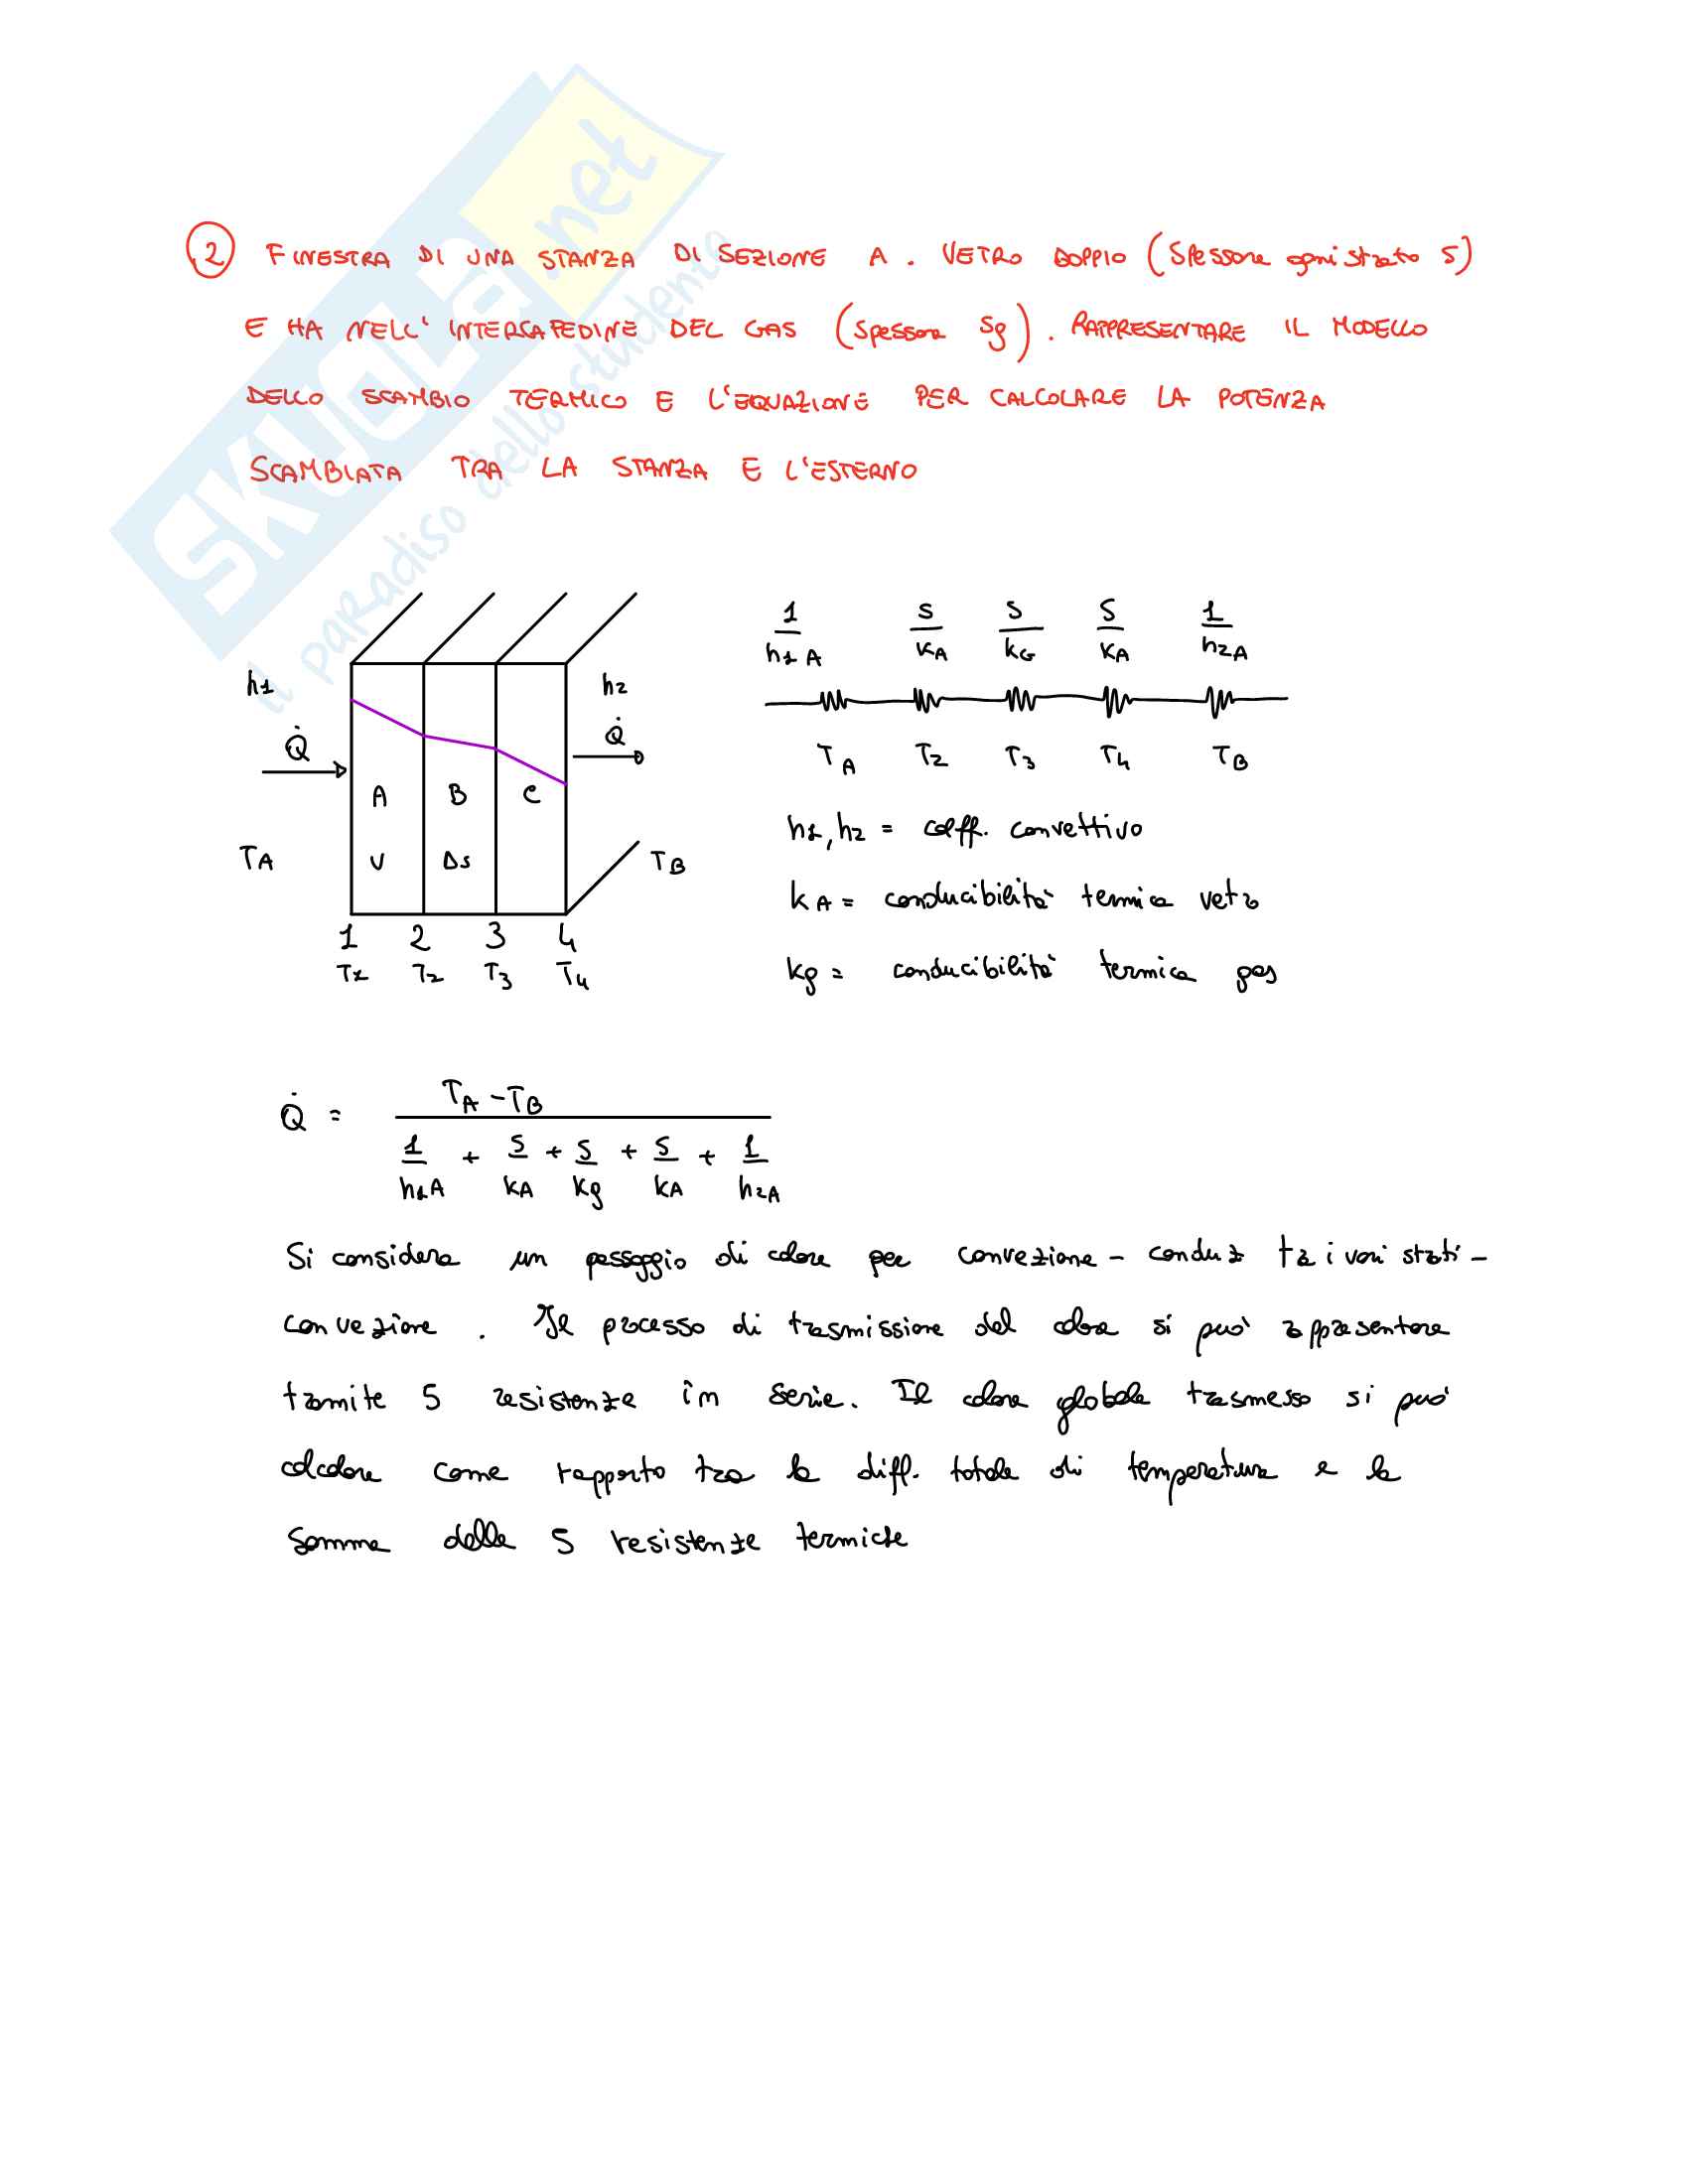 SKUOLA.net
il paradiso dello studente
2 FINESTRA DI UNA STANZA DI SEZIONE A. VETRO DOPPIO (Spessore ogni strato s)
E HA NELL' INTERCAPEDINE DEL GAS (spessore sg). RAPPRESENTARE IL MODELLO
DELLO SCAMBIO TERMICO E L'EQUAZIONE PER CALCOLARE LA POTENZA
SCAMBIATA TRA LA STANZA E L'ESTERNO
1/h1A s/kA s/kG s/kA 1/h2A
h1 h2
Q̇ Q̇
TA T2 T3 T4 TB
A B C
h1, h2 = coeff. convettivo
TA V Δs TB
kA = conducibilità termica vetro
1 2 3 4
T1 T2 T3 T4
kg = conducibilità termica gas
Q̇ = (TA - TB) / (1/h1A + s/kA + s/kg + s/kA + 1/h2A)
Si considera un passaggio di calore per convezione - conduz tra i vari strati -
convezione. Il processo di trasmissione del calore si può rappresentare
tramite 5 resistenze in serie. Il calore globale trasmesso si può
calcolare come rapporto tra la diff. totale di temperatura e la
somma delle 5 resistenze termiche